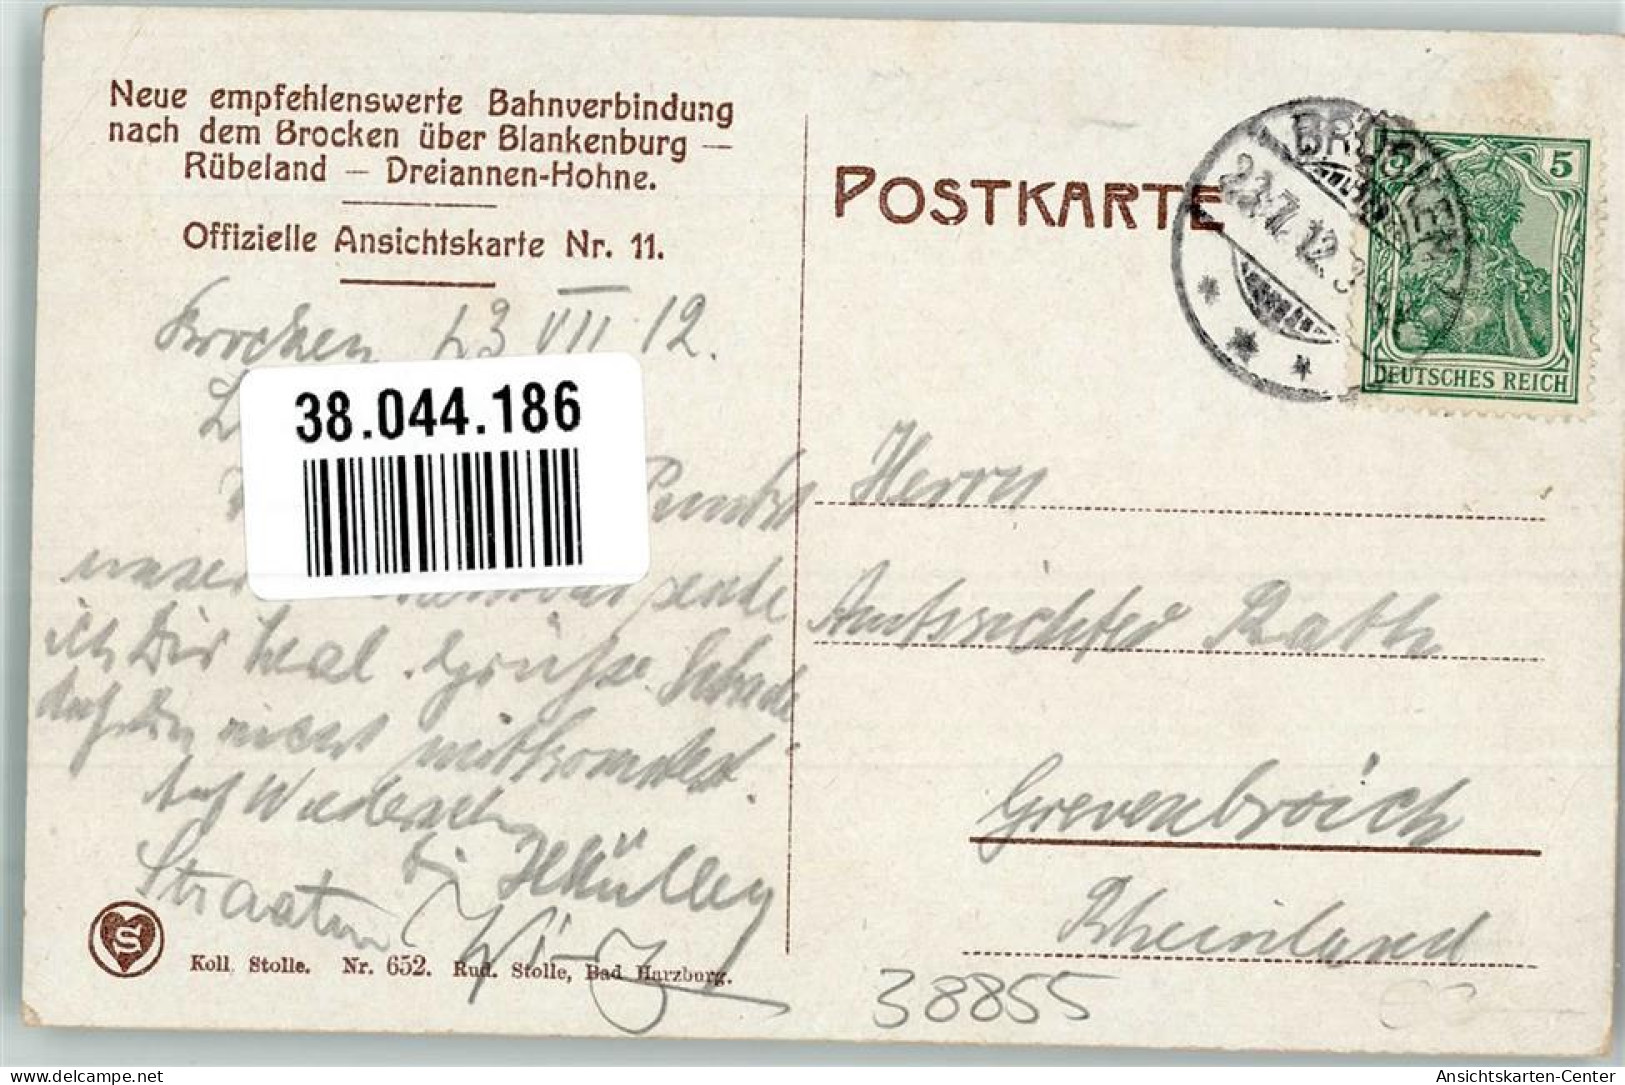 Neue empfehlenswerte Bahnverbindung
nach dem Brocken über Blankenburg —
Rübeland — Dreiannen-Hohne.
Offizielle Ansichtskarte Nr. 11.
Brocken 23 VII 12.
38.044.186
unser
ich Dir mal. Grüße. Schade
daß Du nicht mitkommst.
Auf Wiedersehn
Straaten
Koll. Stolle. Nr. 652. Rud. Stolle, Bad Harzburg.
POSTKARTE
BROCKEN
23.7.12.
5 5
DEUTSCHES REICH
Herrn
Amtsrichter Rath
Grevenbroich
Rheinland
38855
delcampe.net
Ansichtskarten-Center